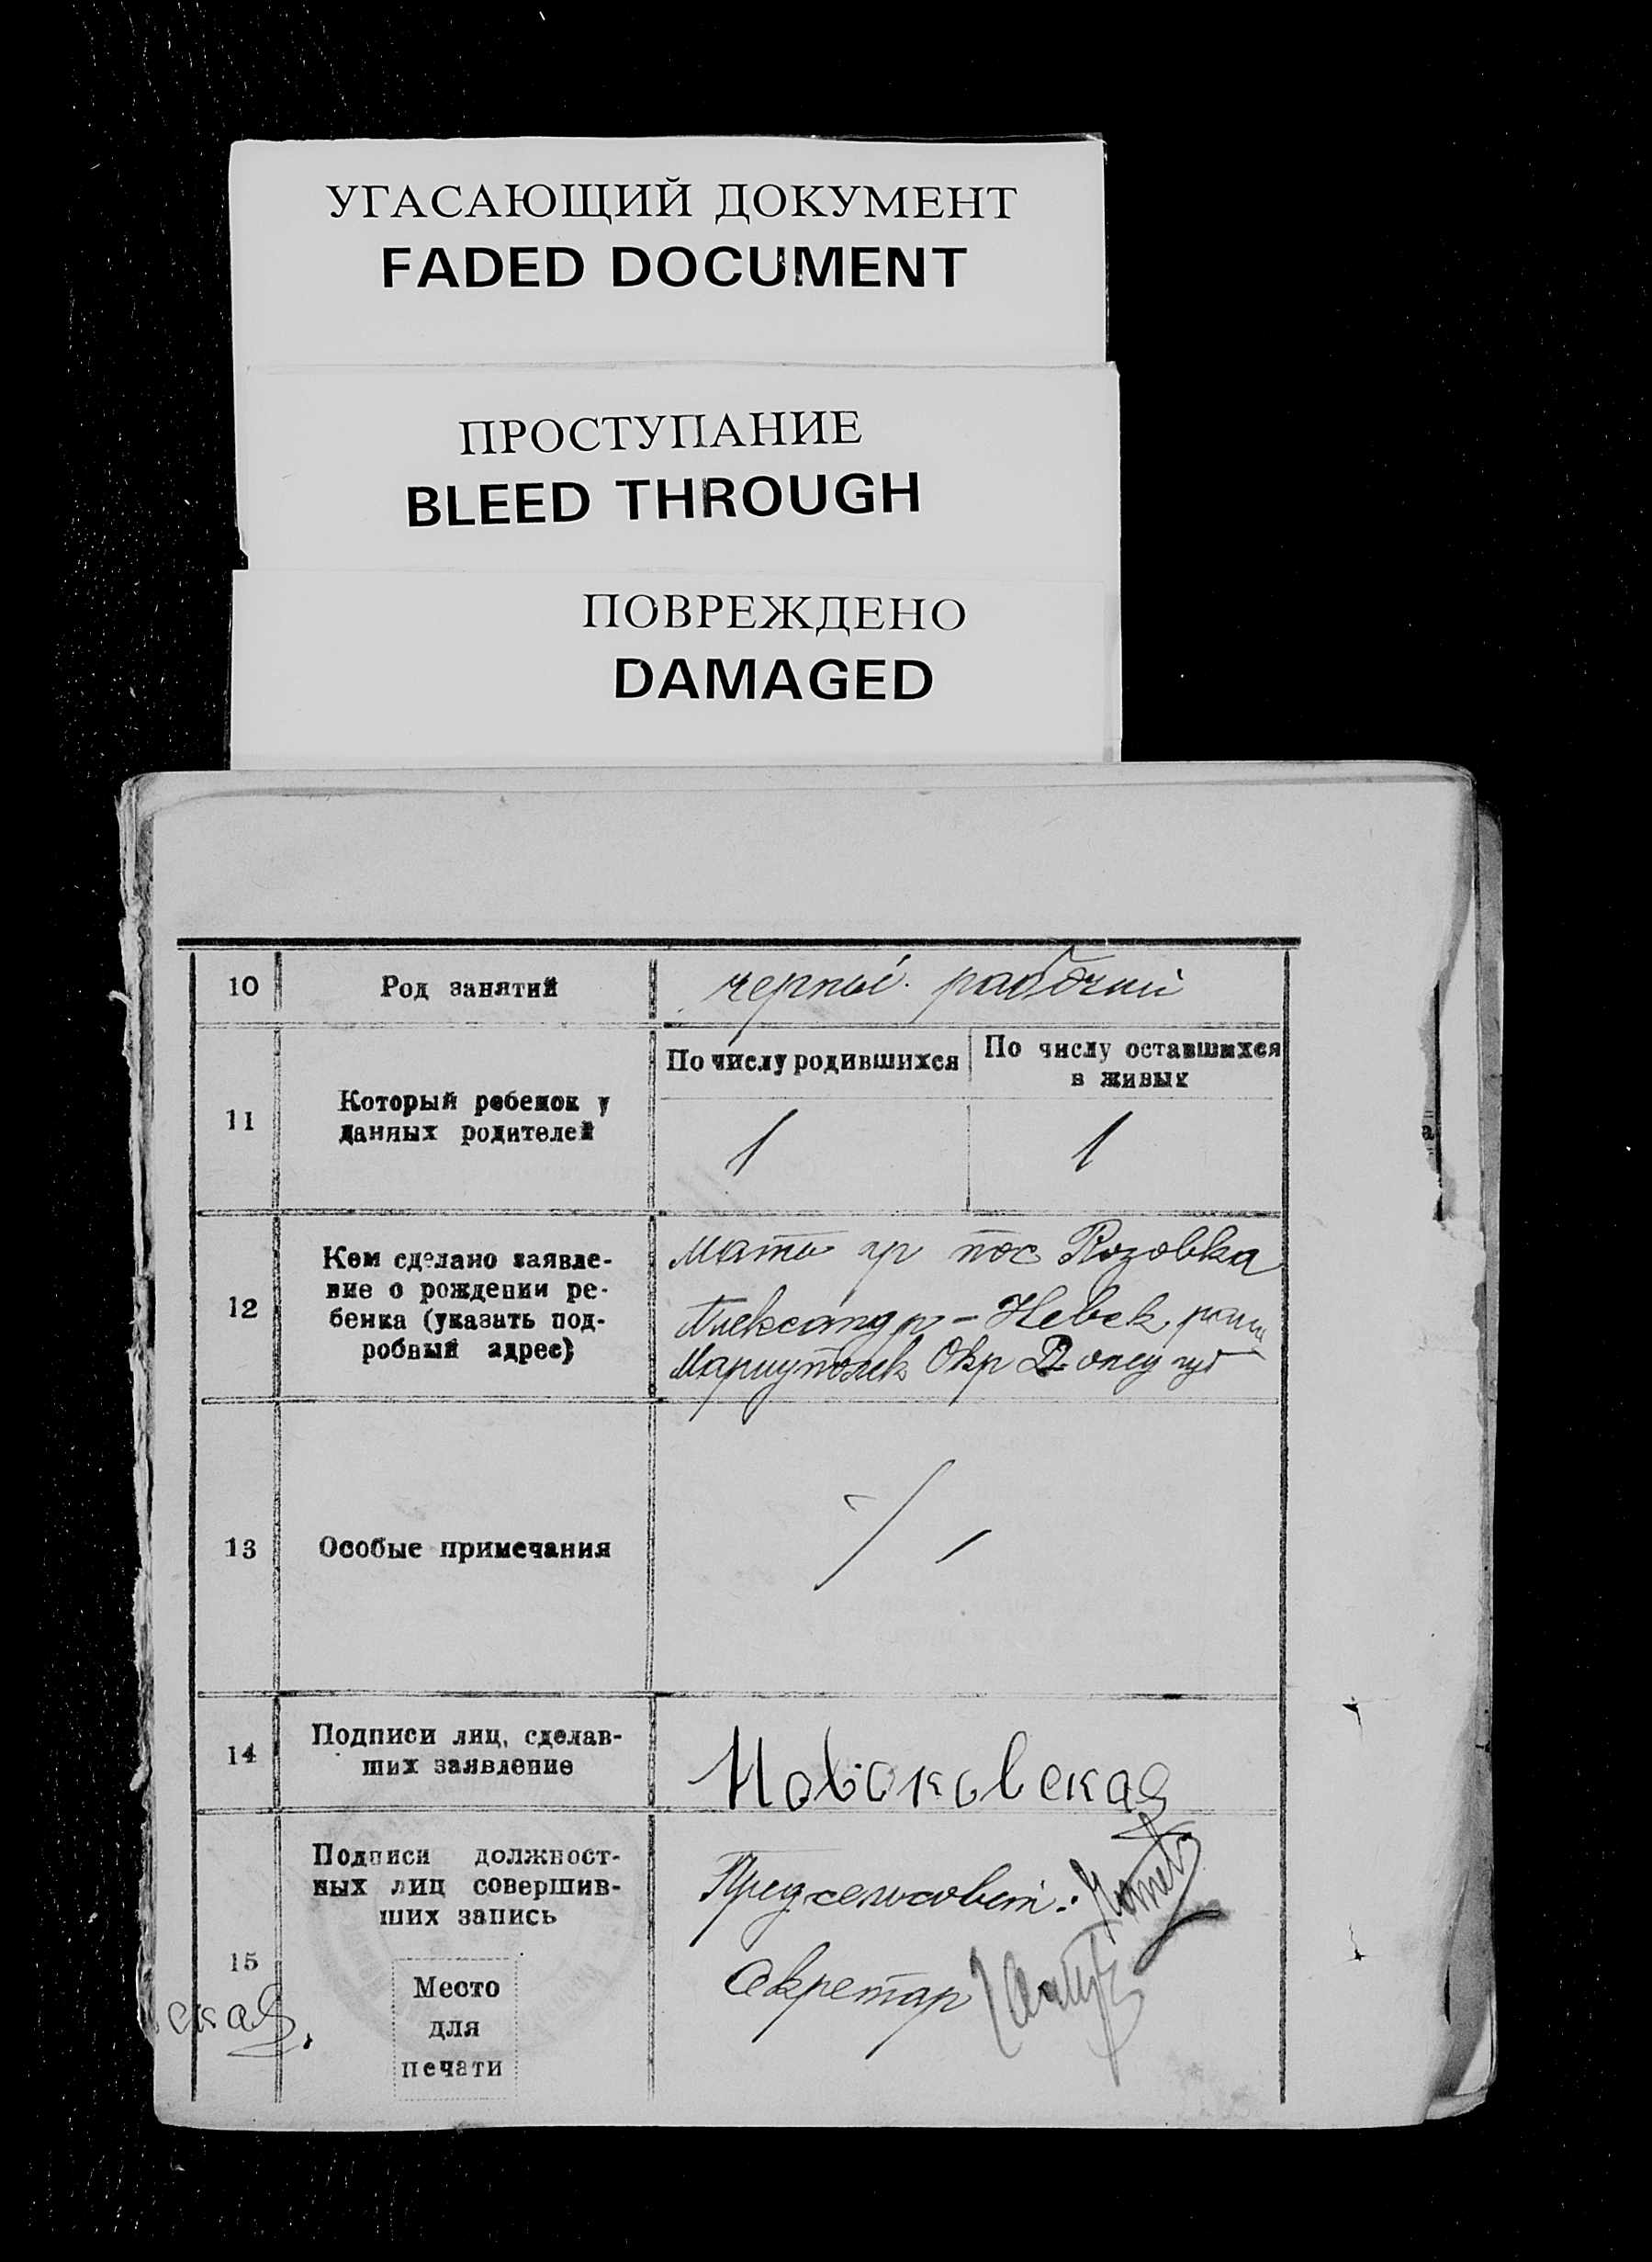 УГАСАЮЩИЙ ДОКУМЕНТ
FADED DOCUMENT
ПРОСТУПАНИЕ
BLEED THROUGH
ПОВРЕЖДЕНО
DAMAGED
10 Род занятий черный рабочий
11 Который ребенок у данных родителей
По числу родившихся
По числу оставшихся
в живых
1 1
12 Кем сделано заявле-
ние о рождении ре-
бенка (указать под-
робный адрес)
Мать гр пос Розовка
Александр-Невск
Мариупольск Окр Донец губ
13 Особые примечания
14 Подписи лиц, сделав-
ших заявление
15 Подписи должност-
ных лиц совершив-
ших запись
Место
для
печати
Пред сельсовет:
Секретар
ская